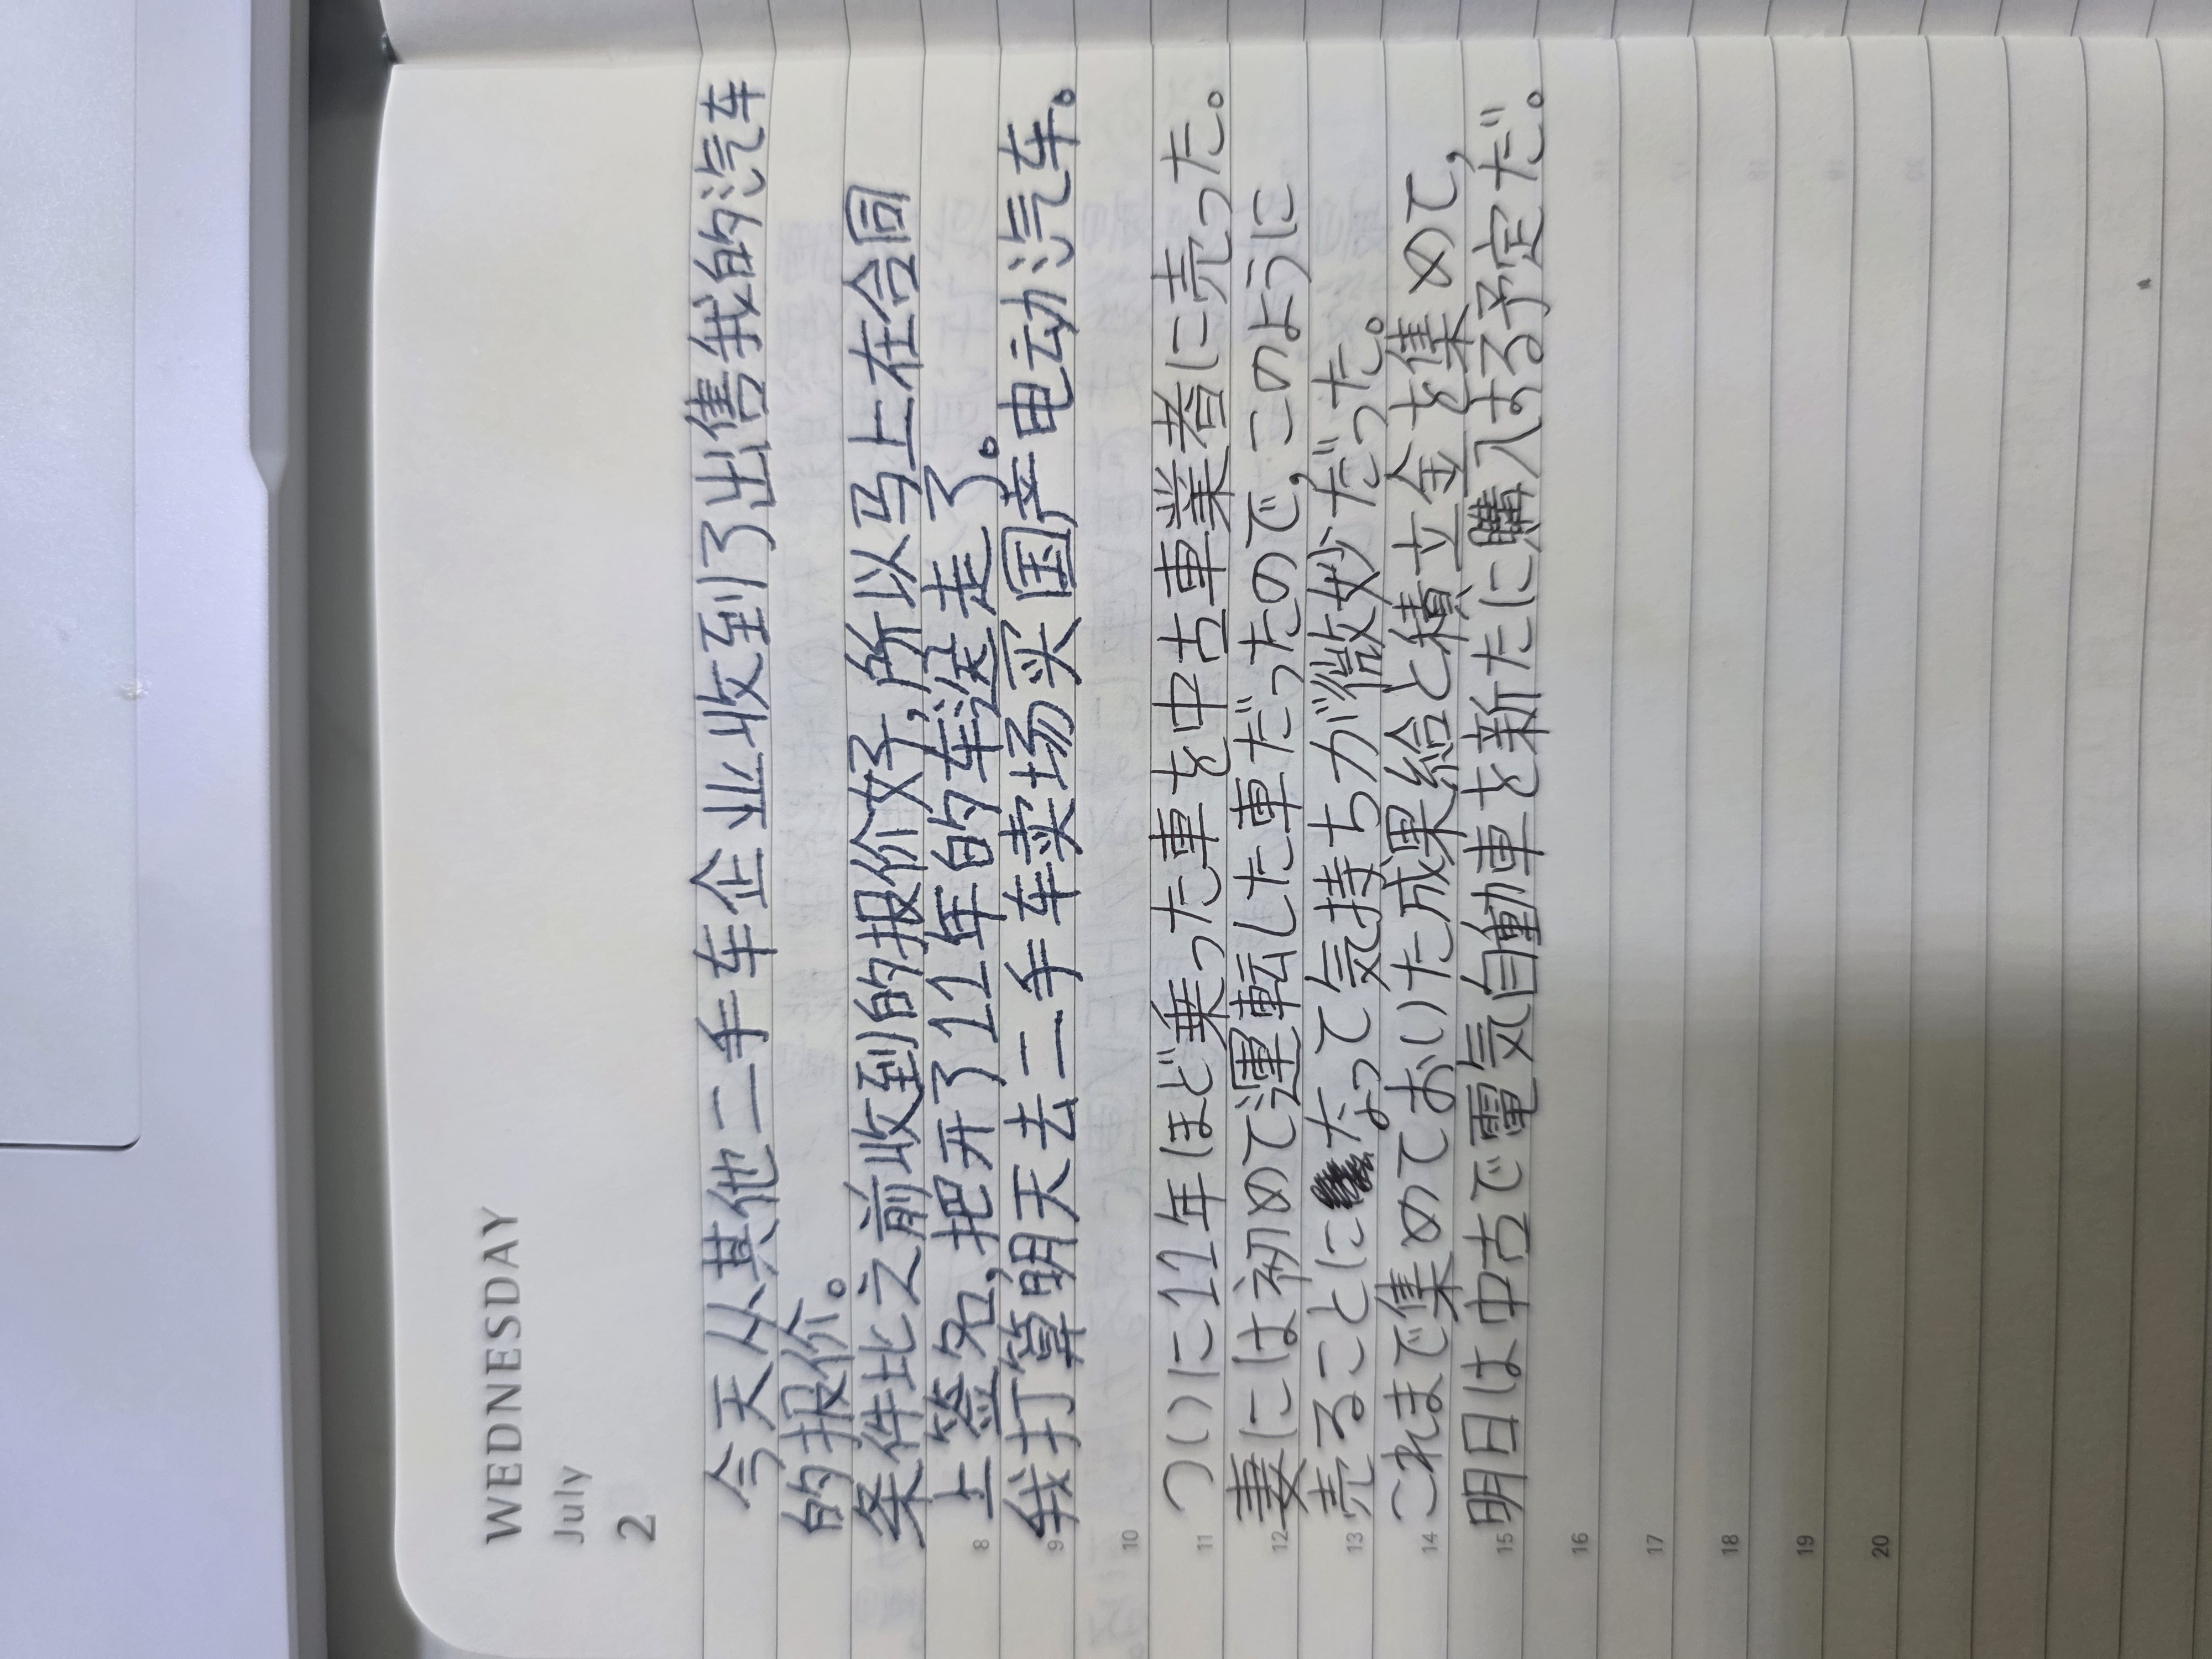 WEDNESDAY
July
2
今天从其他二手车企业收到了出售我的汽车
的报价。
条件比之前收到的报价好,所以马上在合同
8 上签名,把开了11年的车送走了。
9 我打算明天去二手车卖场买国产电动汽车。
10
11 ついに11年ほど乗った車を中古車業者に売った。
12 妻には初めて運転した車だったので,このように
13 売ることになって気持ちが微妙だった。
14 これまで集めておいた成果給と積立金を集めて,
15 明日は中古で電気自動車を新たに購入する予定だ。
16
17
18
19
20